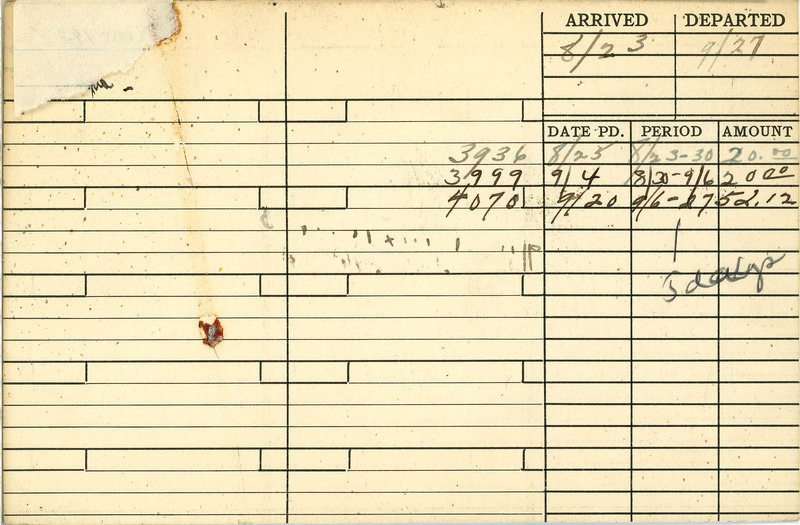 ARRIVED DEPARTED
8/23 9/27
DATE PD. PERIOD AMOUNT
3936 8/25 8/23-30 20.00
3999 9/4 8/30-9/6 20.00
4070 9/20 9/6-27 52.12
days